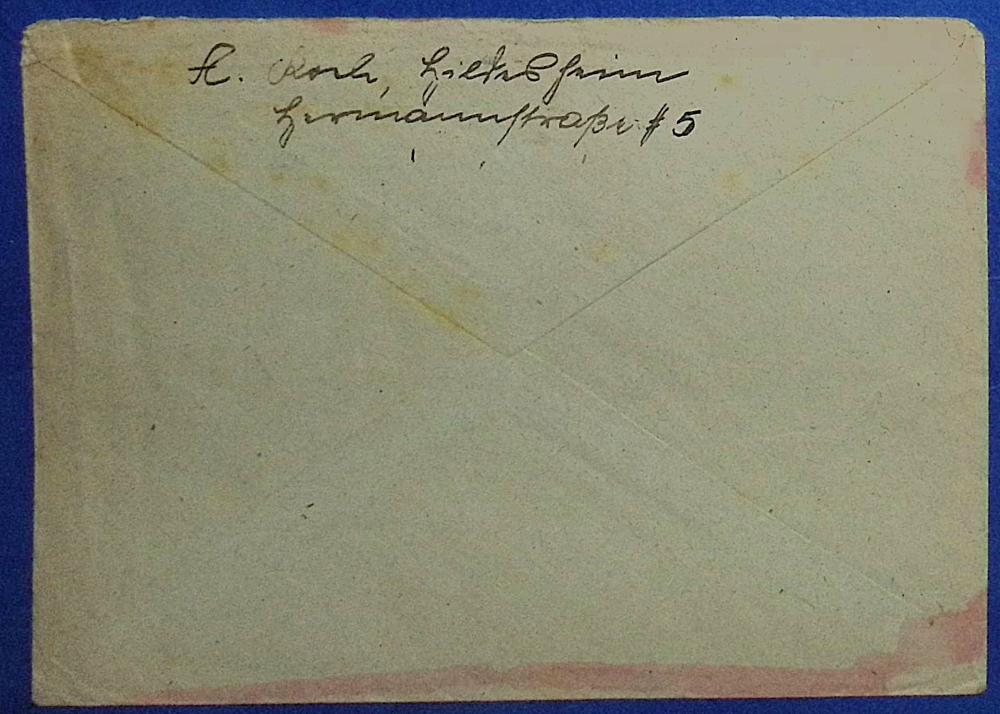 A. Koch, Hildesheim
Hermannstraße # 5